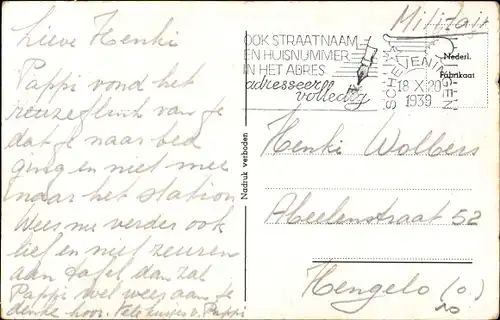 Lieve Henki
Pappi vond het
reuzeflink van je
dat je naar bed
ging en niet mee
naar het station
Wees nu verder ook
lief en niet zeuren
aan tafel dan zal
Pappi wel weer aan je
denke hoor. Tele kusjes v. Pappi
Nadruk verboden
Militair
OOK STRAATNAAM
EN HUISNUMMER
IN HET ADRES
adresseer
volledig
SCHEVENINGEN
18 X. 20
1939
Nederl.
Fabrikaat
Henki Wolbers
Abeelenstraat 52
Hengelo (O.)